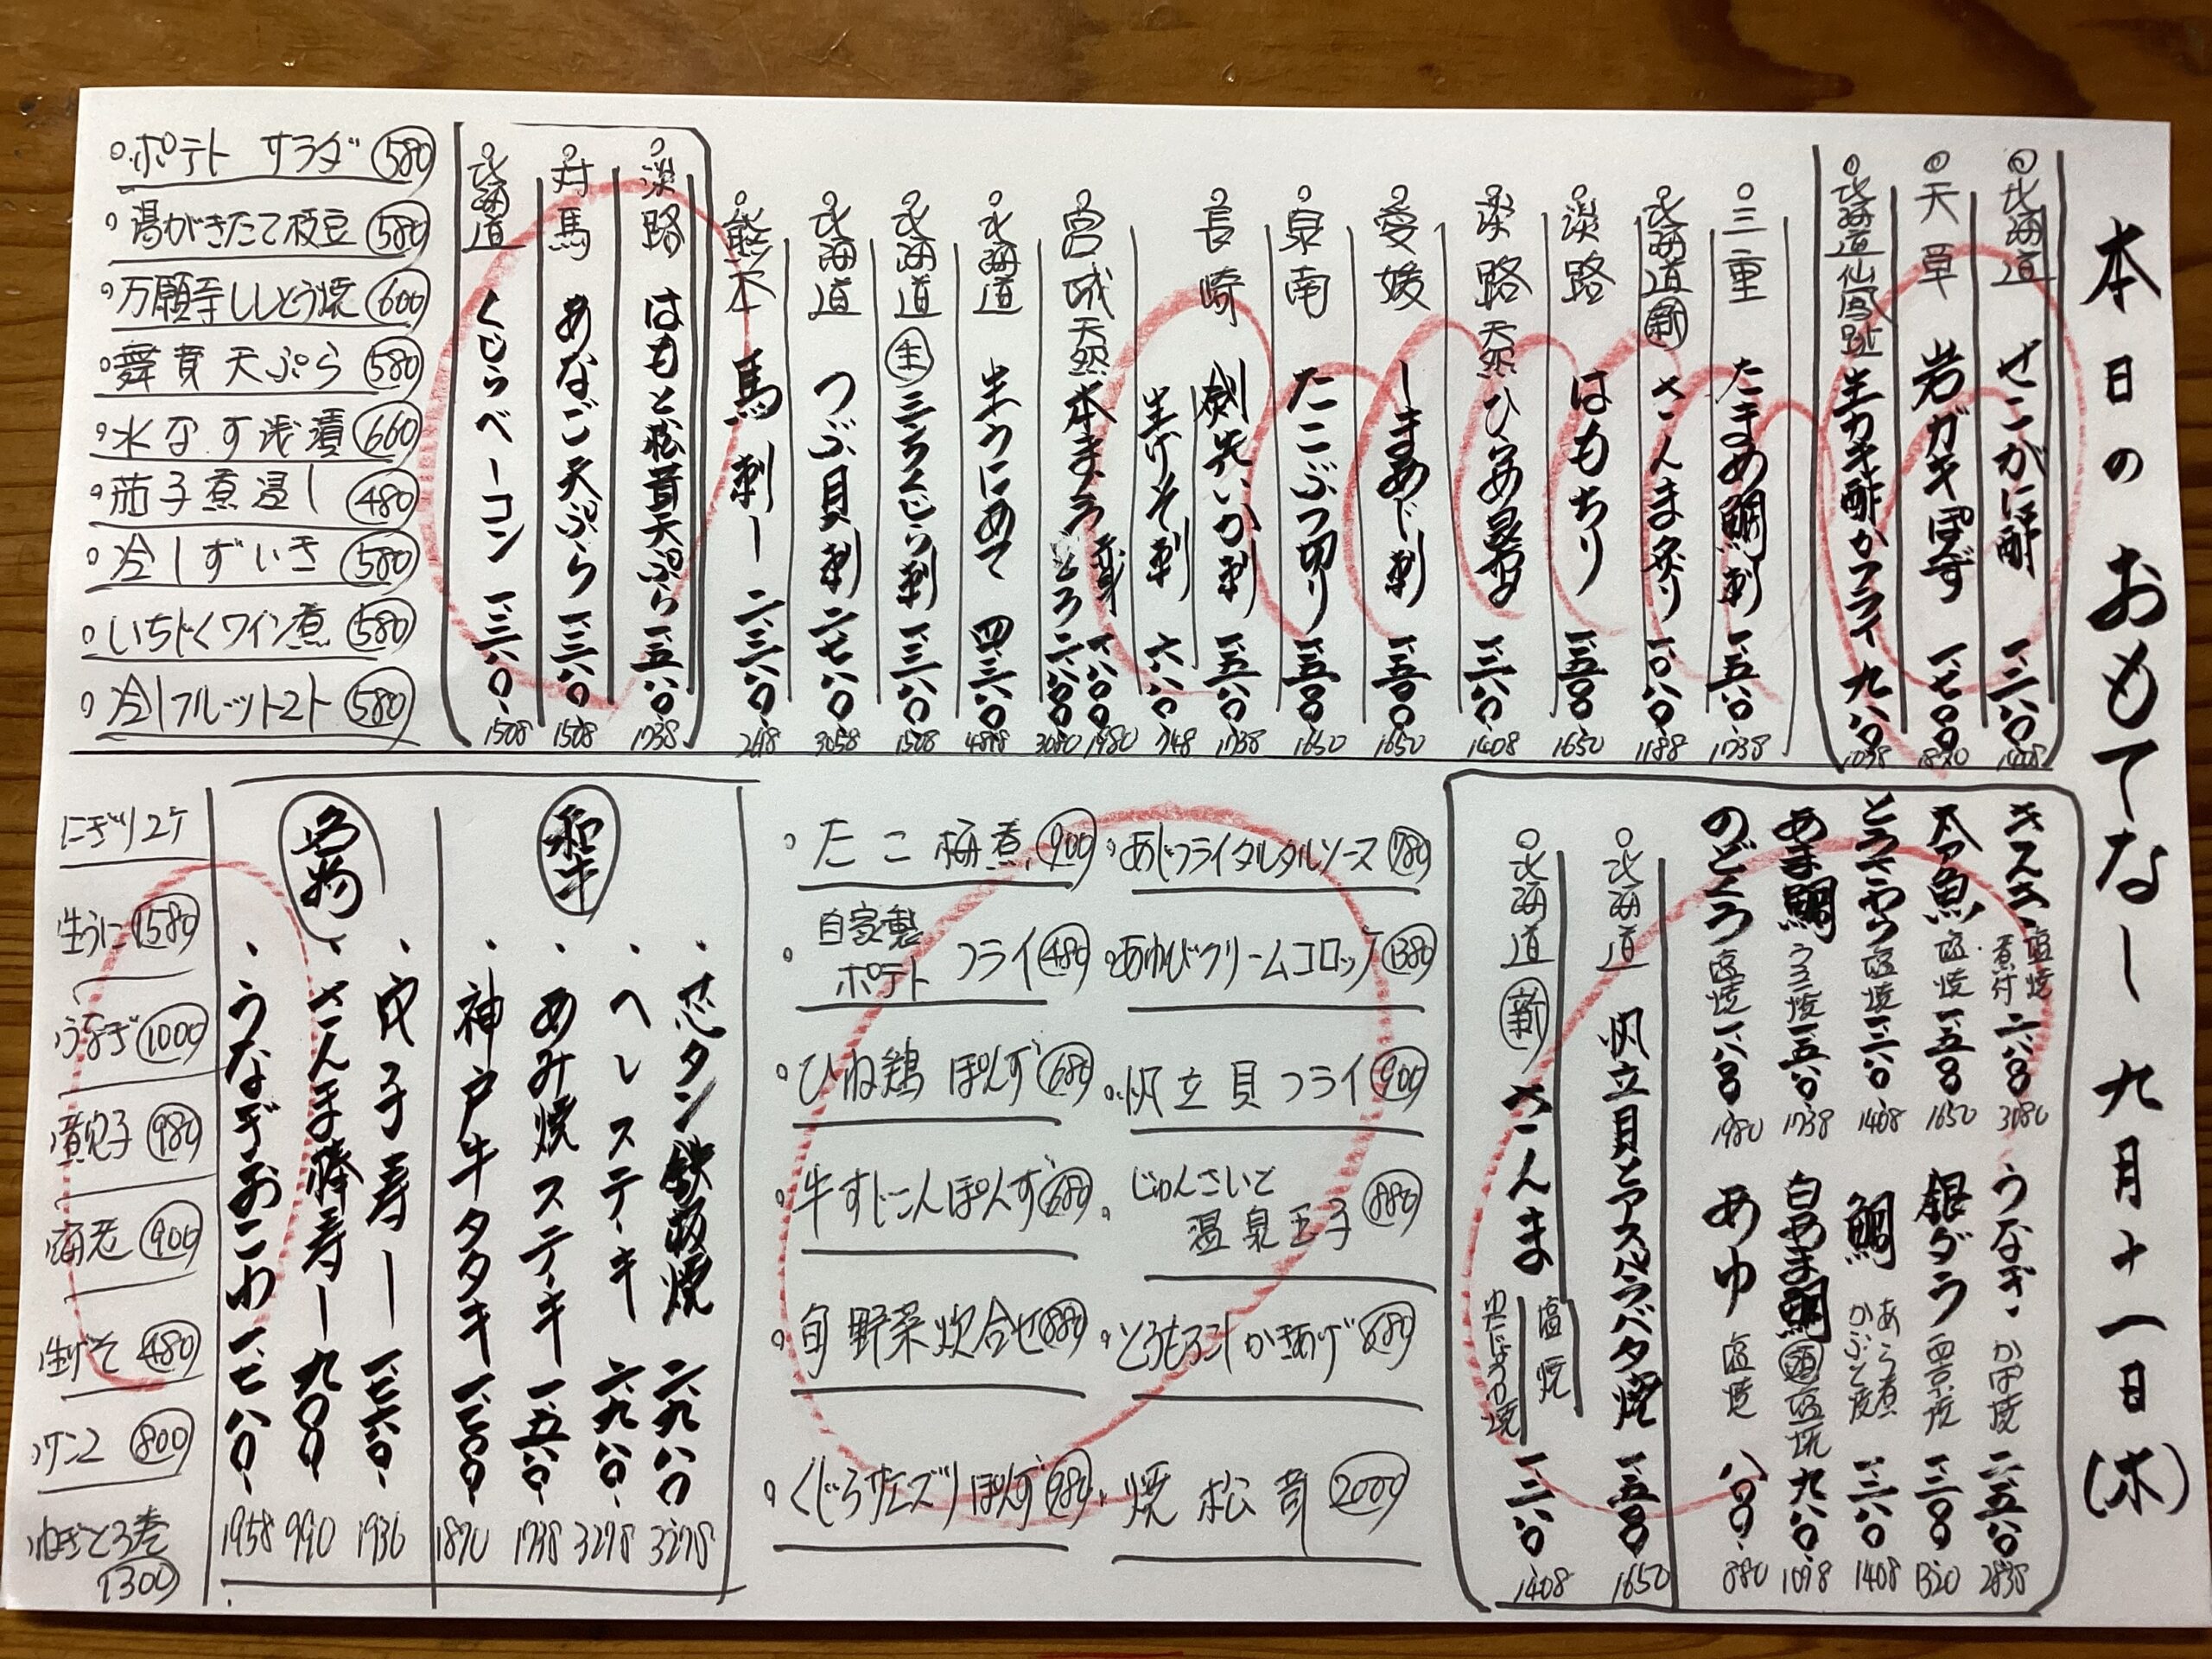 本日のおもてなし 九月十一日(木)
◎北海道 せこがに酢 一、二八〇 1408
◎天草 岩ガキぽず 一、七〇〇 1870
◎北海道仙鳳趾 生カキ酢かフライ 九八〇 1078
○三重 たまめ鯛刺 一、五八〇 1738
○北海道 新 さんま炙り 一、〇八〇 1188
○淡路 はもちり 一、五〇〇 1650
○淡路 天然 ひらめ昆布〆 一、二八〇 1408
○愛媛 しまあじ刺 一、五〇〇 1650
○泉南 たこぶつ切り 一、五〇〇 1650
○長崎 剣先いか刺 一、五八〇 1738
生げそ刺 六八〇 748
○宮城 天然 本まぐろ 赤身 一、八〇〇 1980
とろ 二、八〇〇 3080
○北海道 生うにめて 四、三八〇 4818
○北海道 生 ミンクくじら刺 一、三八〇 1508
○北海道 つぶ貝刺 二、七八〇 3058
○熊本 馬刺し 二、三八〇 2618
○淡路 はもと松茸天ぷら 一、五八〇 1738
○対馬 あなご天ぷら 一、三八〇 1508
○北海道 くじらベーコン 一、三八〇 1508
○ポテトサラダ 580
○湯がきたて枝豆 580
○万願寺ししとう焼 600
○舞茸天ぷら 580
○水なす浅漬 660
○茄子煮浸し 480
○冷しずいき 580
○いちじくワイン煮 580
○冷しフルーツトマト 580
キスス 塩焼 煮付 二、八〇〇 3080
太刀魚 塩焼 一、五〇〇 1650
とろさわら 塩焼 一、二八〇 1408
あま鯛 うろこ焼 一、五八〇 1738
のどぐろ 塩焼 一、八〇〇 1980
うなぎ かば焼 二、五八〇 2838
銀ダラ 西京焼 一、二〇〇 1320
鯛 あら煮 かぶと焼 一、二八〇 1408
白あま鯛 酒塩焼 九八〇 1078
あゆ 塩焼 八〇〇 880
○北海道 帆立貝とアスパラバタ焼 一、五〇〇 1650
○北海道 新 さんま 塩焼 ゆずじょうゆ焼 一、二八〇 1408
○あじフライタルタルソース 780
○あゆびクリームコロッケ 1380
○帆立貝フライ 900
○じゅんさいと温泉玉子 880
○とうもろこしかきあげ 880
○焼松茸 2000
○たこ梅煮 900
○自家製ポテトフライ 480
○ひね鶏ぽんず 680
○牛すじこんぽんず 680
○旬野菜炊合せ 880
○くじらサエズリぽんず 980
和牛
・芯タン鉄板焼 二、九八〇 3278
・ヘレステーキ 二、九八〇 3278
・あみ焼ステーキ 一、五八〇 1738
・神戸牛タタキ 一、七〇〇 1870
名物
・穴子寿し 一、七六〇 1936
・さんま棒寿し 九〇〇 990
・うなぎおこわ 一、七八〇 1958
にぎり2ケ
生うに 1580
うなぎ 1000
漬白子 980
海老 900
生げそ 480
サーモン 800
ねぎとろ巻 1300